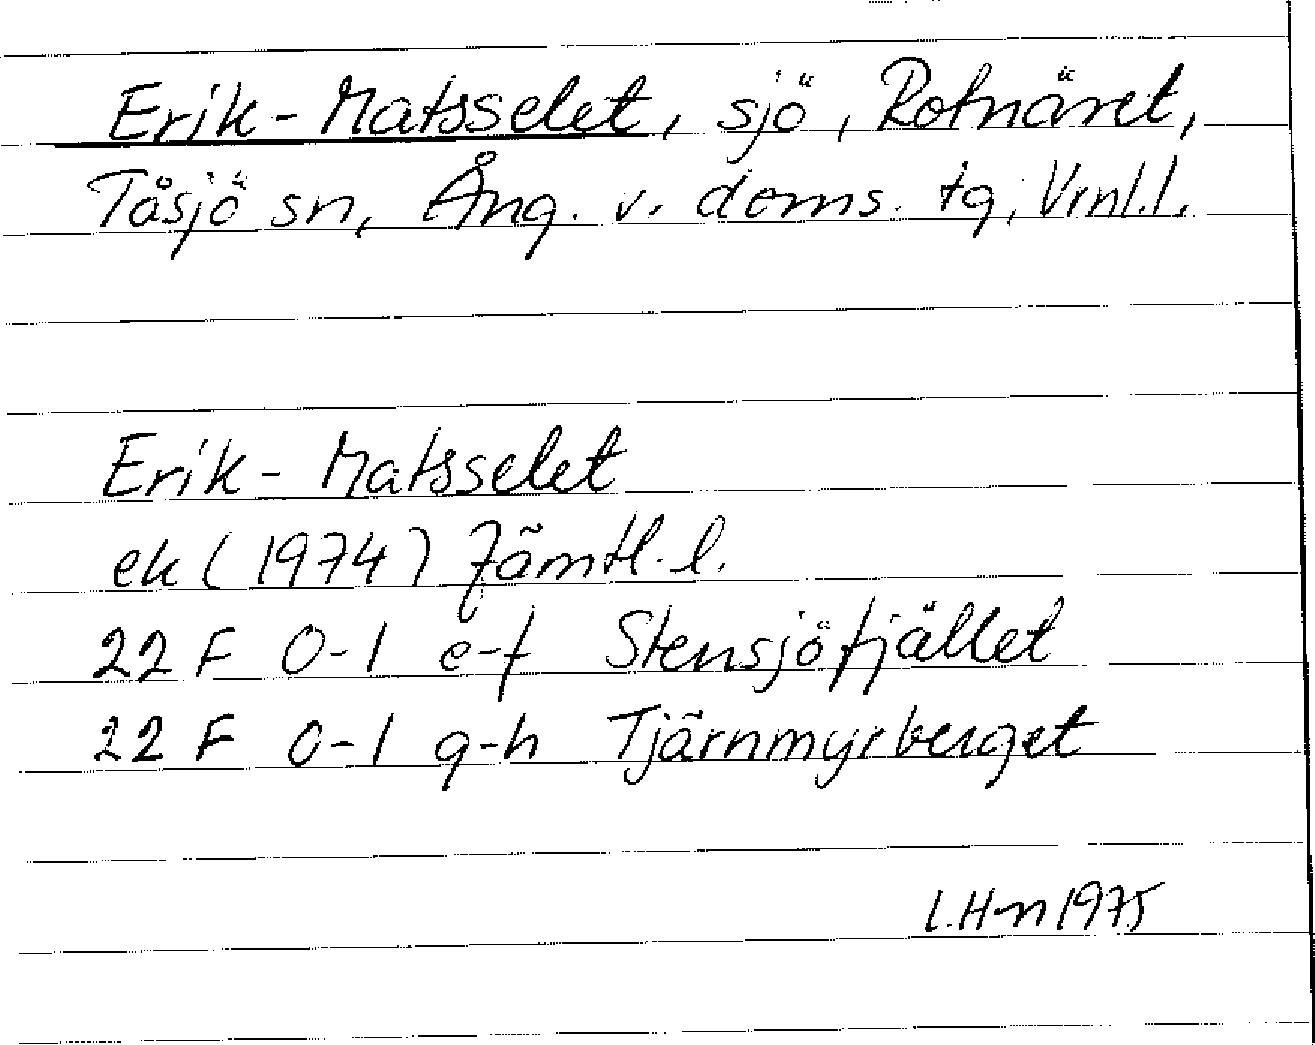 Erik-Matsselet, sjö, Rotnäset,
Tåsjö sn, Ång. v. doms. tg, Vrnl.l.
Erik-Matsselet
ek (1974) Jämtl.l.
22 F 0-1 e-f Stensjöfjället
22 F 0-1 g-h Tjärnmyrberget
L.H-n 1975